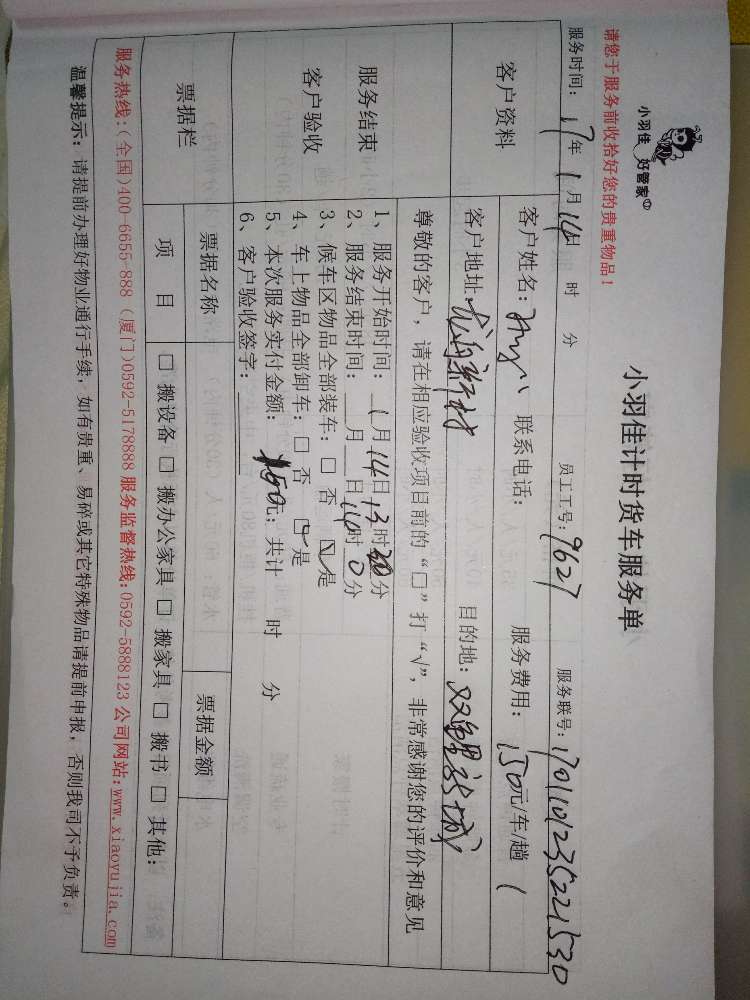 小羽佳 好管家
小羽佳计时货车服务单
请您于服务前收拾好您的贵重物品！
服务时间：17年1月14日 时 分 员工工号：9627 服务联号：1701101235221530
客户资料
客户姓名： 联系电话： 服务费用：150元/车/趟（
客户地址： 目的地：双鲤新城
尊敬的客户，请在相应验收项目前的“□”打“√”，非常感谢您的评价和意见
服务结束
客户验收
1、服务开始时间：1月14日13时30分
2、服务结束时间：__月__日14时0分
3、候车区物品全部装车：□ 否 ☑是
4、车上物品全部卸车：□ 否 ☑是
5、本次服务实付金额：150元；共计 时 分
6、客户验收签字：
票据栏
票据名称 票据金额
项 目 □ 搬设备 □ 搬办公家具 □ 搬家具 □ 搬书 □ 其他：
服务热线：(全国)400-6655-888 (厦门)0592-5178888 服务监督热线：0592-5888123 公司网站：www.xiaoyujia.com
温馨提示：请提前办理好物业通行手续，如有贵重、易碎或其它特殊物品请提前申报，否则我司不予负责。